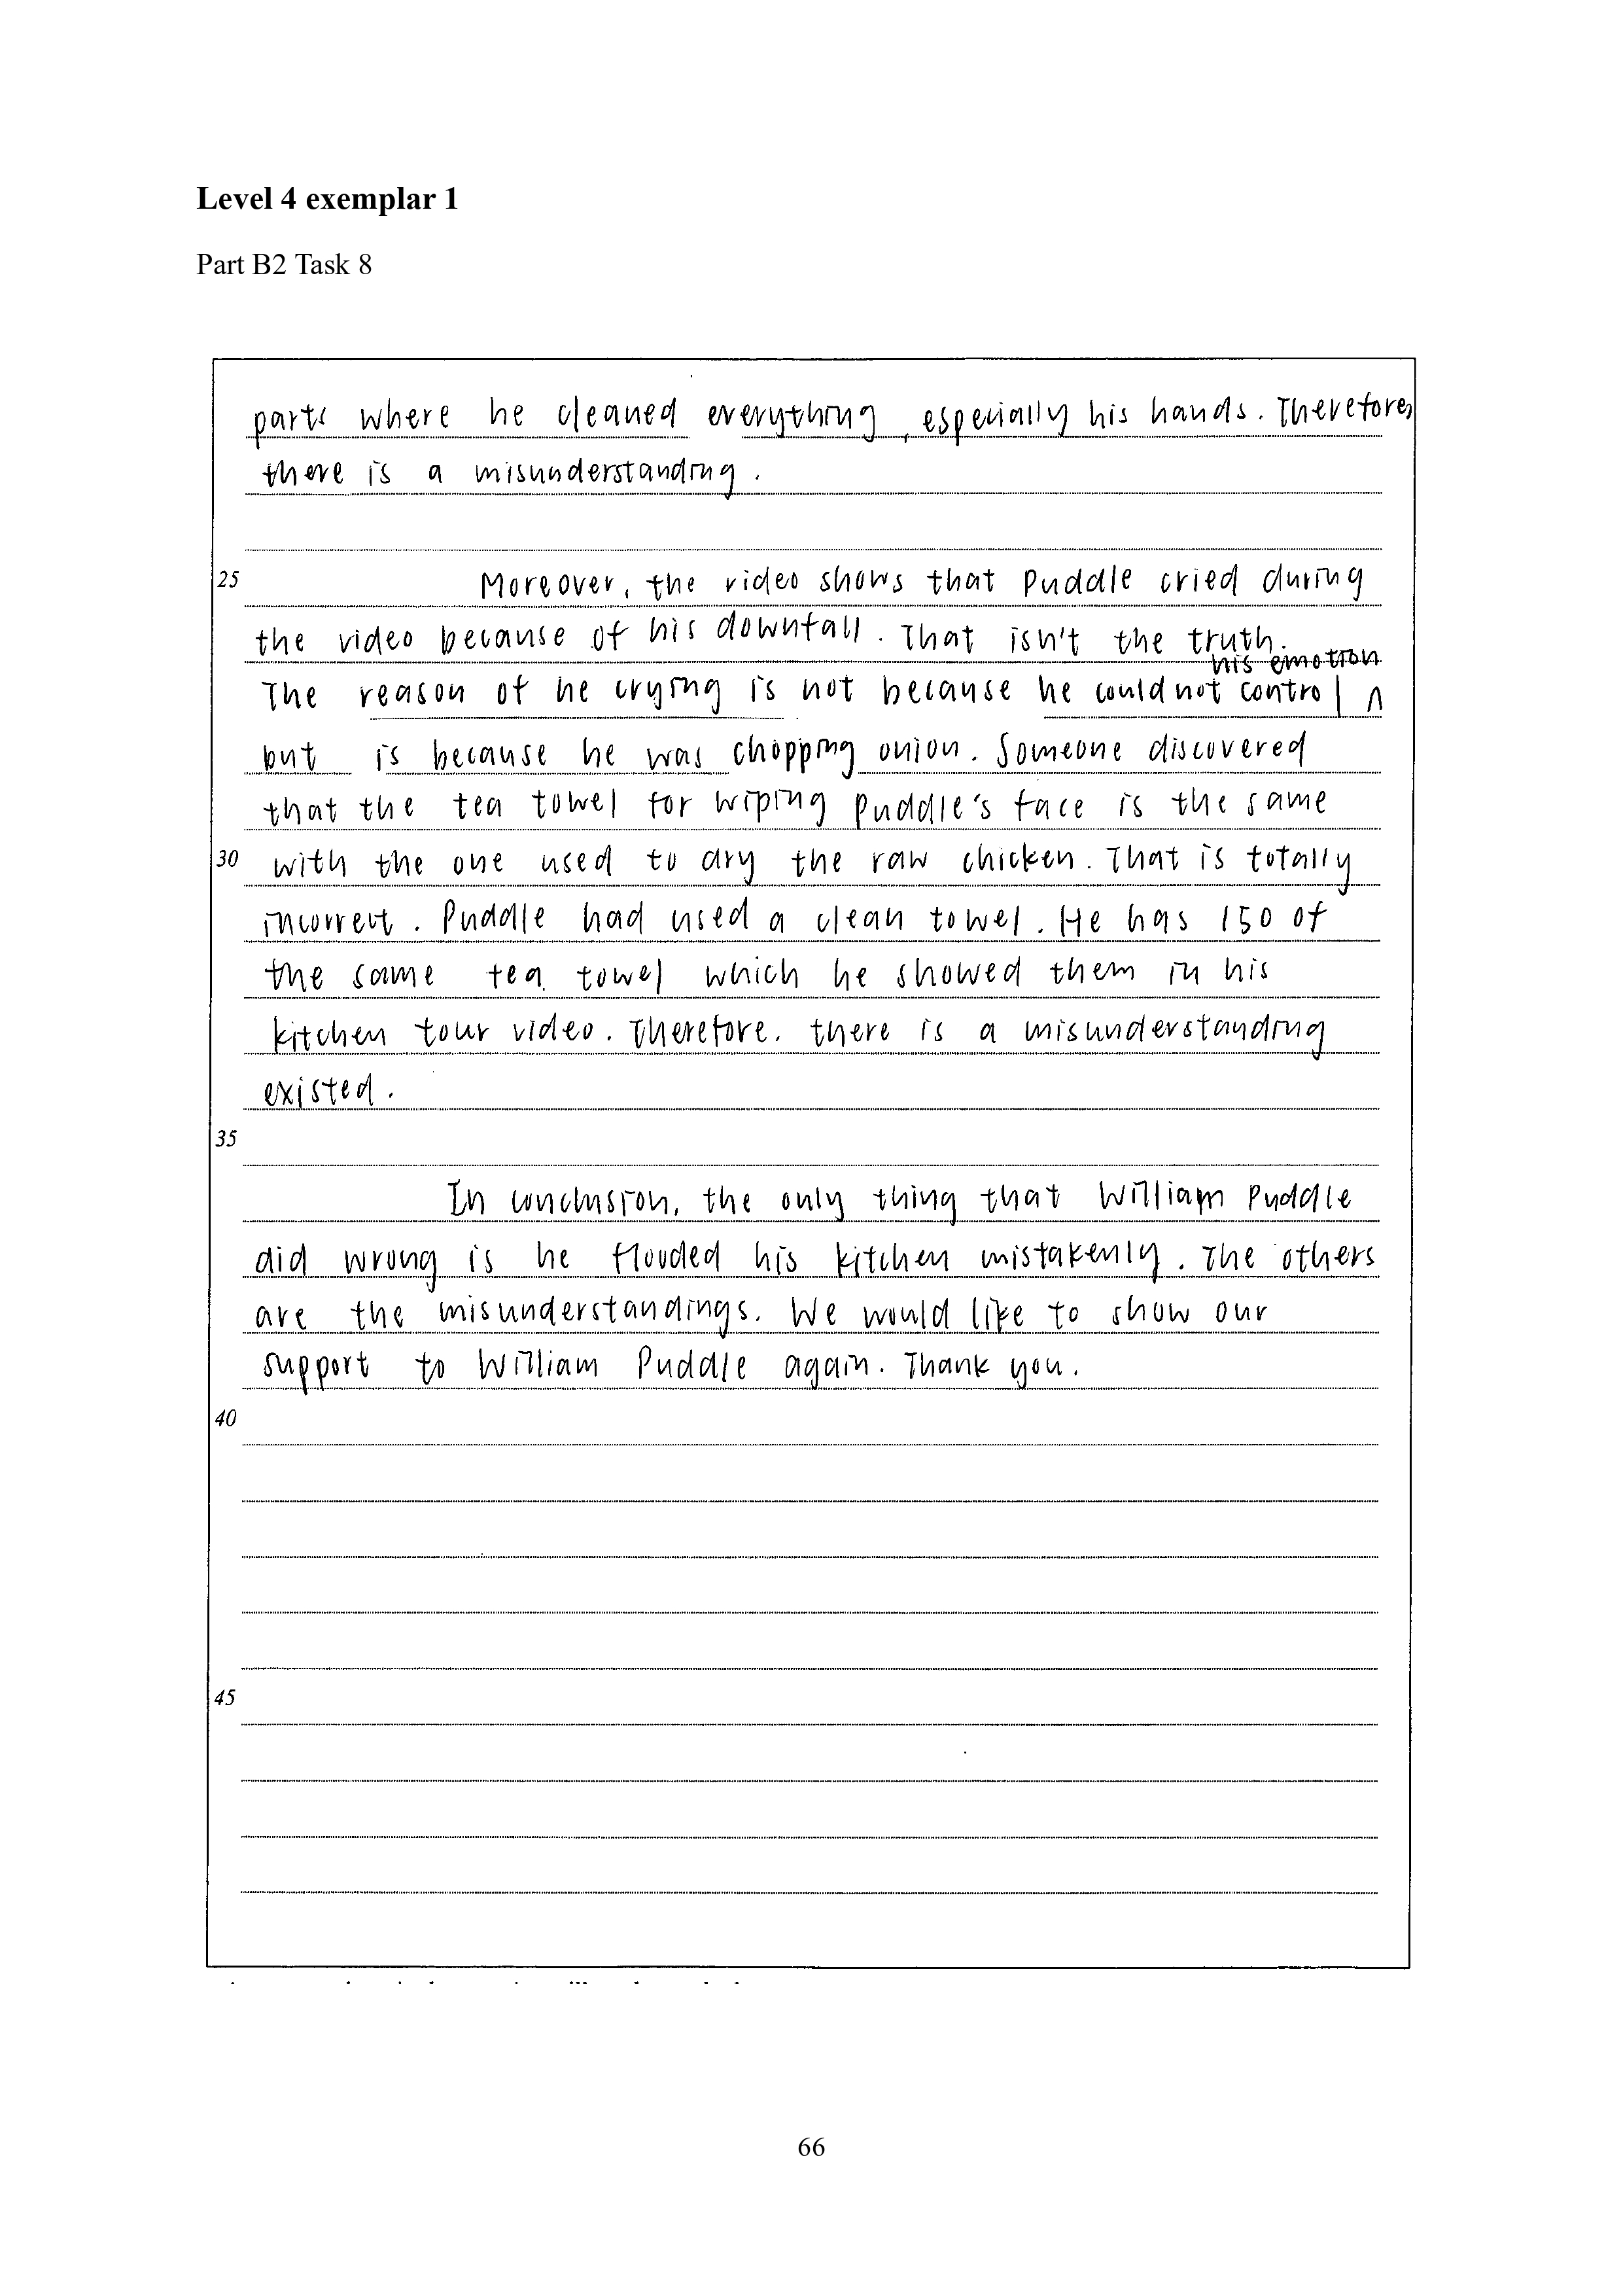 Level 4 exemplar 1
Part B2 Task 8
parts where he cleaned everything, especially his hands. Therefore,
there is a misunderstanding.
25 Moreover, the video shows that Puddle cried during
the video because of his downfall. That isn't the truth.
his emotion
The reason of he crying is not because he could not control ^
but is because he was chopping onion. Someone discovered
that the tea towel for wiping Puddle's face is the same
30 with the one used to dry the raw chicken. That is totally
incorrect. Puddle had used a clean towel. He has 150 of
the same tea towel which he showed them in his
kitchen tour video. Therefore, there is a misunderstanding
existed.
35
In conclusion, the only thing that William Puddle
did wrong is he flooded his kitchen mistakenly. The others
are the misunderstandings. We would like to show our
support to William Puddle again. Thank you.
40
45
66